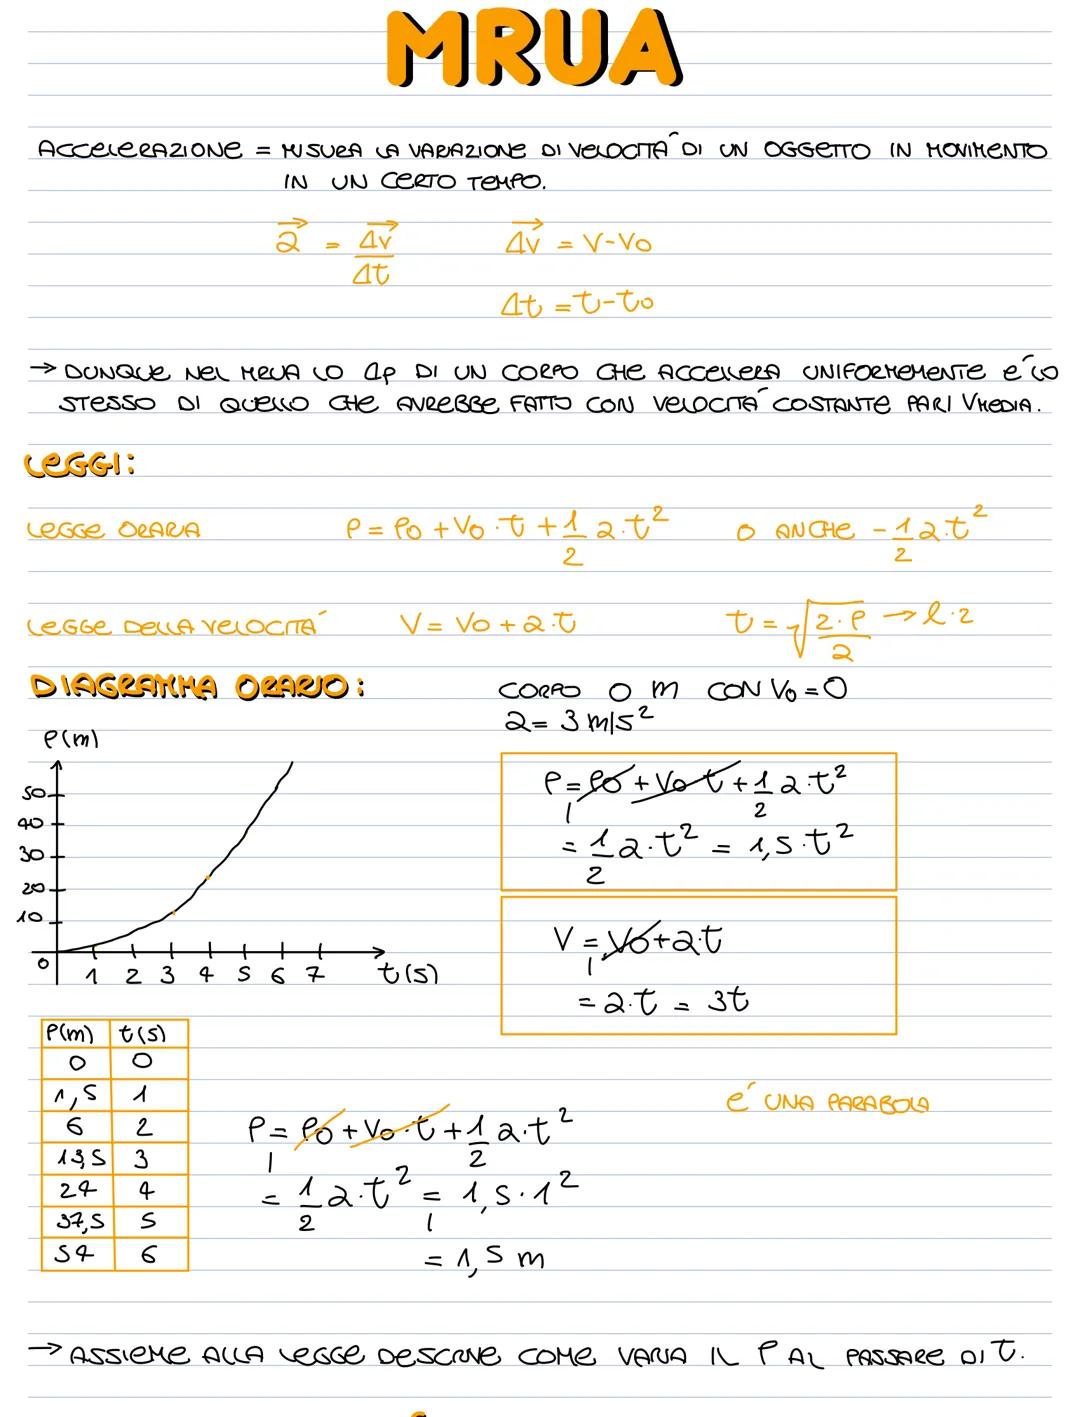 MRUA
ACCELERAZIONE = MISURA LA VARAZIONE DI VELOCITÀ DI UN OGGETTO IN MOVIMENTO
IN UN CERTO TEMPO.
a = Δv/Δt    Δv = v-v₀
Δt = t-t₀
→ DUNQUE NEL MRUA LO Δp DI UN CORPO CHE ACCELERA UNIFORMEMENTE E' LO
STESSO DI QUELLO CHE AVREBBE FATTO CON VELOCITÀ COSTANTE PARI VMEDIA.
LEGGI:
LEGGE ORARIA    P = P₀ + V₀ · t + 1/2 a · t²    O ANCHE - 1/2 a · t²
LEGGE DELLA VELOCITÀ    V = V₀ + a · t    t = √(2 · P / a) → l · 2
DIAGRAMMA ORARIO:
CORPO 0 m CON V₀ = 0
a = 3 m/s²
P(m)
50
40
30
20
10
0
1 2 3 4 5 6 7 t(s)
P = P₀ + V₀ t + 1/2 a · t²
= 1/2 a · t² = 1,5 · t²
V = V₀ + a · t
= a · t = 3t
P(m) t(s)
0 0
1,5 1
6 2
13,5 3
24 4
37,5 5
54 6
E' UNA PARABOLA
P = P₀ + V₀ · t + 1/2 a · t²
= 1/2 a · t² = 1,5 · 1²
= 1,5 m
→ ASSIEME ALLA LEGGE DESCRIVE COME VARIA IL P AL PASSARE DI t.